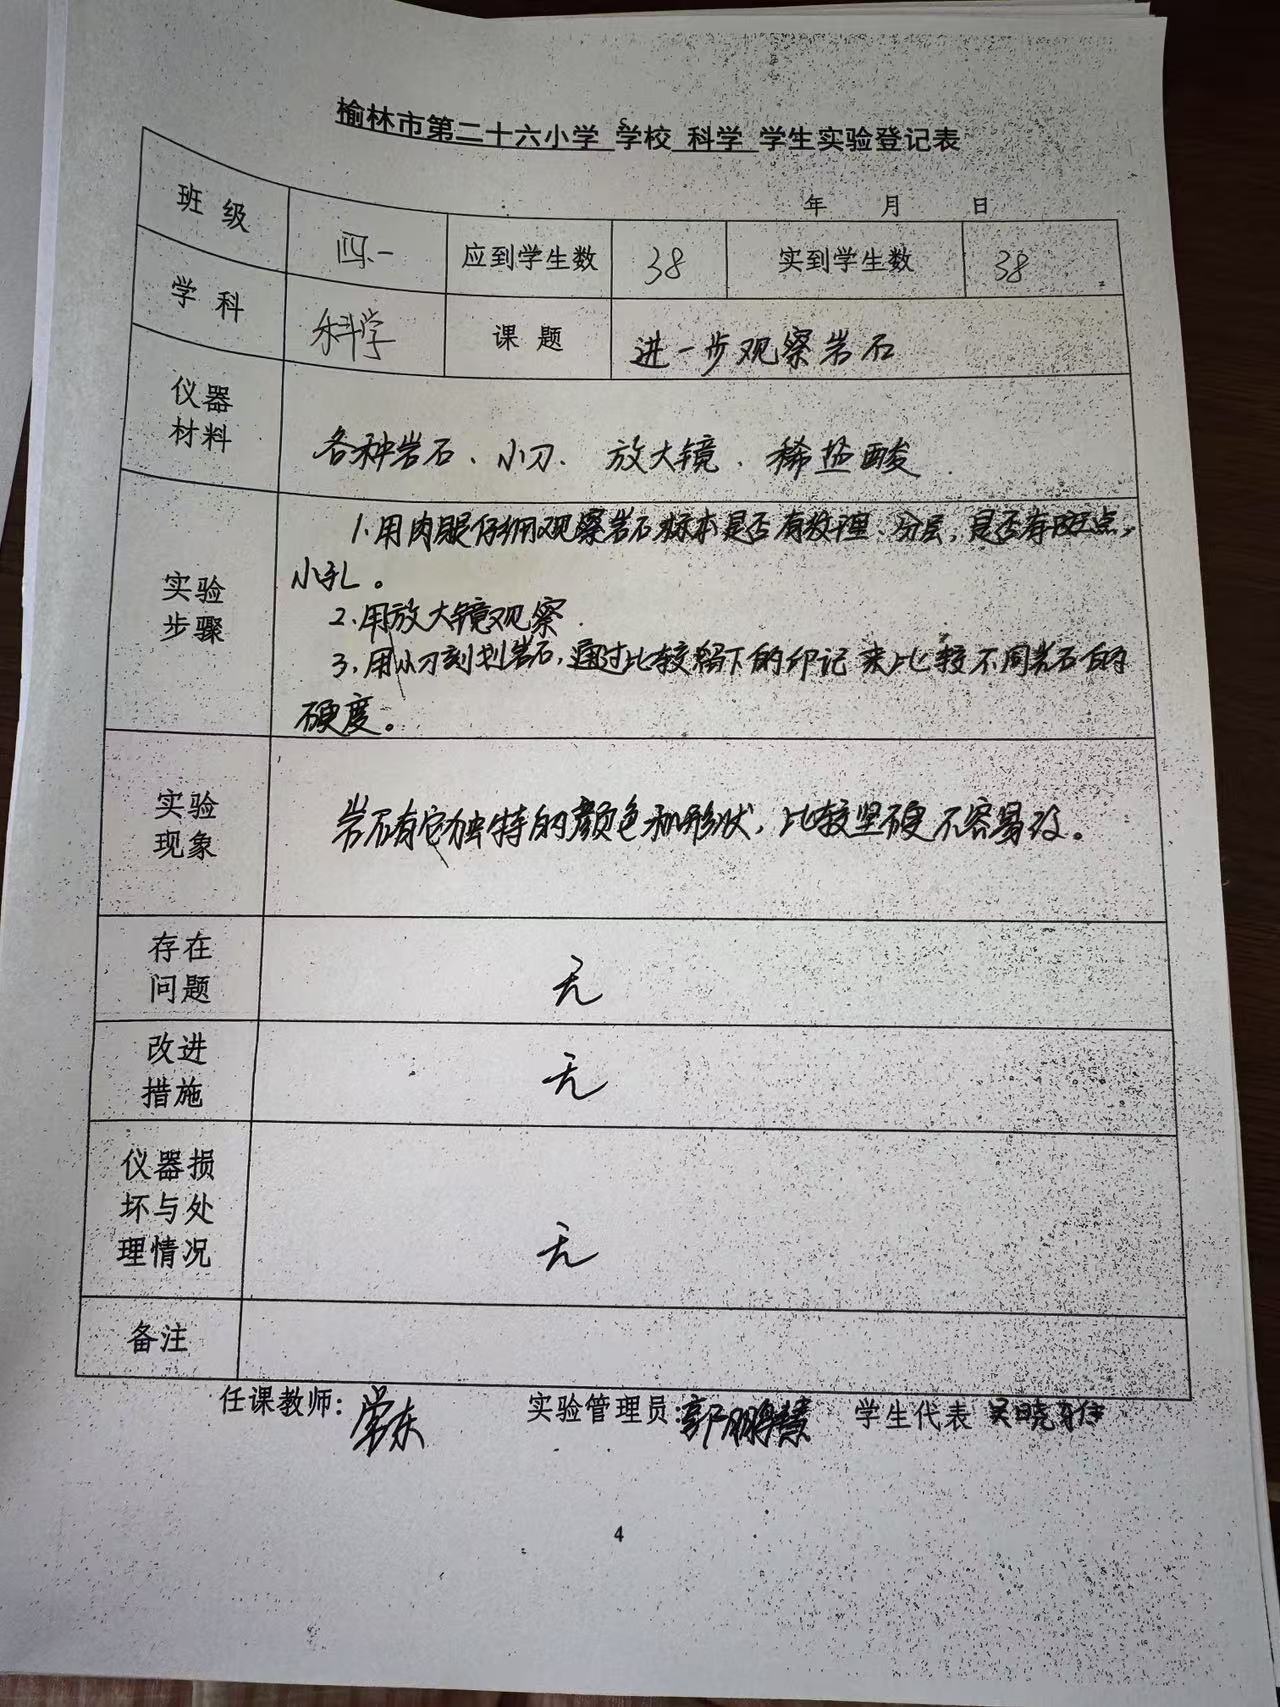 榆林市第二十六小学 学校 科学 学生实验登记表
年 月 日
班级 四.一 应到学生数 38 实到学生数 38
学科 科学 课题 进一步观察岩石
仪器
材料
各种岩石、小刀、放大镜、稀盐酸
实验
步骤
1.用肉眼仔细观察岩石标本是否有纹理、分层,是否有斑点,
小孔。
2.用放大镜观察
3.用小刀刻划岩石,通过比较留下的印记来比较不同岩石的
硬度。
实验
现象
岩石有它独特的颜色和形状,比较坚硬不容易
存在
问题
无
改进
措施
无
仪器损
坏与处
理情况
无
备注
任课教师: 实验管理员:郭鹏慧 学生代表 吴晓雅
4